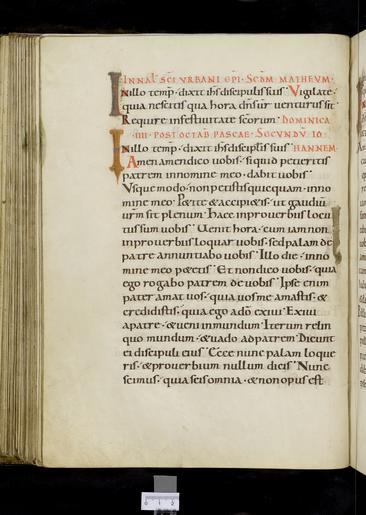 IN NAT SCI URBANI EPI · SCDM MATHEUM ·
In illo temp · dixit ihs discipulis suis Vigilate ·
quia nescitis qua hora dnr uenturus sit
Require in festiuitate scorum · DOMINICA
IIII · POST OCTAB PASCAE · SECUNDU IO
In illo temp · dixit ihs discipulis suis HANNEM ·
Amen amen dico uobis · si quid petieritis
patrem in nomine meo · dabit uobis
Vsque modo · non petistis quicquam · in no
mine meo Petite & accipietis · ut gaudiu
urm sit plenum Haec in prouerbis locu
tus sum uobis Uenit hora · cum iam non
in prouerbiis loquar uobis · sed palam de
patre annuntiabo uobis Illo die · in no
mine meo petetis Et non dico uobis · quia
ego rogabo patrem de uobis Ipse enim
pater amat uos · quia uos me amastis · &
credidistis · quia ego a do exiui Exiui
a patre · & ueni in mundum Iterum relin
quo mundum · & uado ad patrem Dicunt
ei discipuli eius Ecce nunc palam loque
ris · & prouerbium nullum dicis Nunc
scimus · quia scis omnia · & non opus est